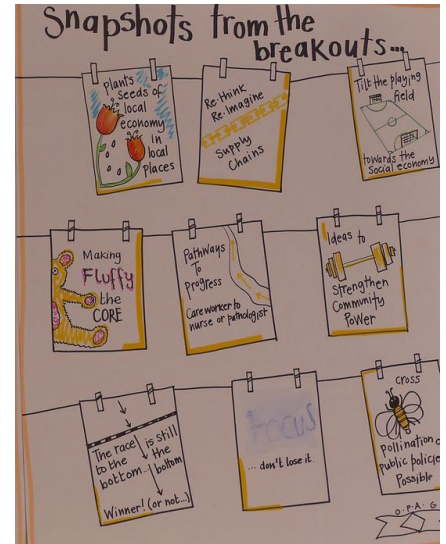 Snapshots from the
breakouts...
Plants
seeds of
local
economy
in
local
places
Re-think
Re-Imagine
Supply
Chains
Tilt the playing
field
towards the
Social economy
Making
Fluffy
the
CORE
Pathways
To
Progress
Care worker to
nurse or pathologist
Ideas to
Strengthen
Community
Power
The race is still
to the the
bottom bottom
Winner! (or not...)
FOCUS
... don't lose it
cross
pollination o
public policie
Possible
O.P.A.G